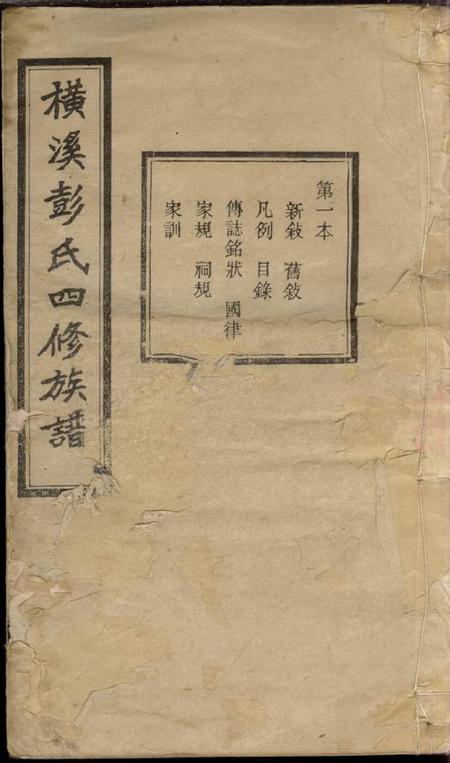 橫溪彭氏四修族譜
第一本
新敍 舊敍
凡例 目錄
傳誌銘狀 國律
家規 祠規
家訓